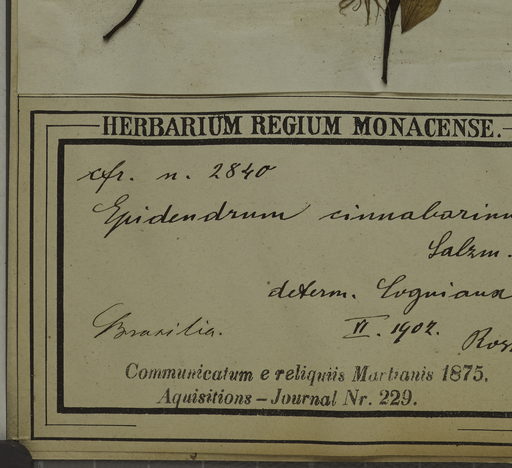 HERBARIUM REGIUM MONACENSE.
cfr. n. 2840
Epidendrum cinnabarinu
Salzm.
determ. Cogniaux
Brasilia. VI. 1902. Ross
Communicatum e reliquiis Martianis 1875.
Aquisitions – Journal Nr. 229.